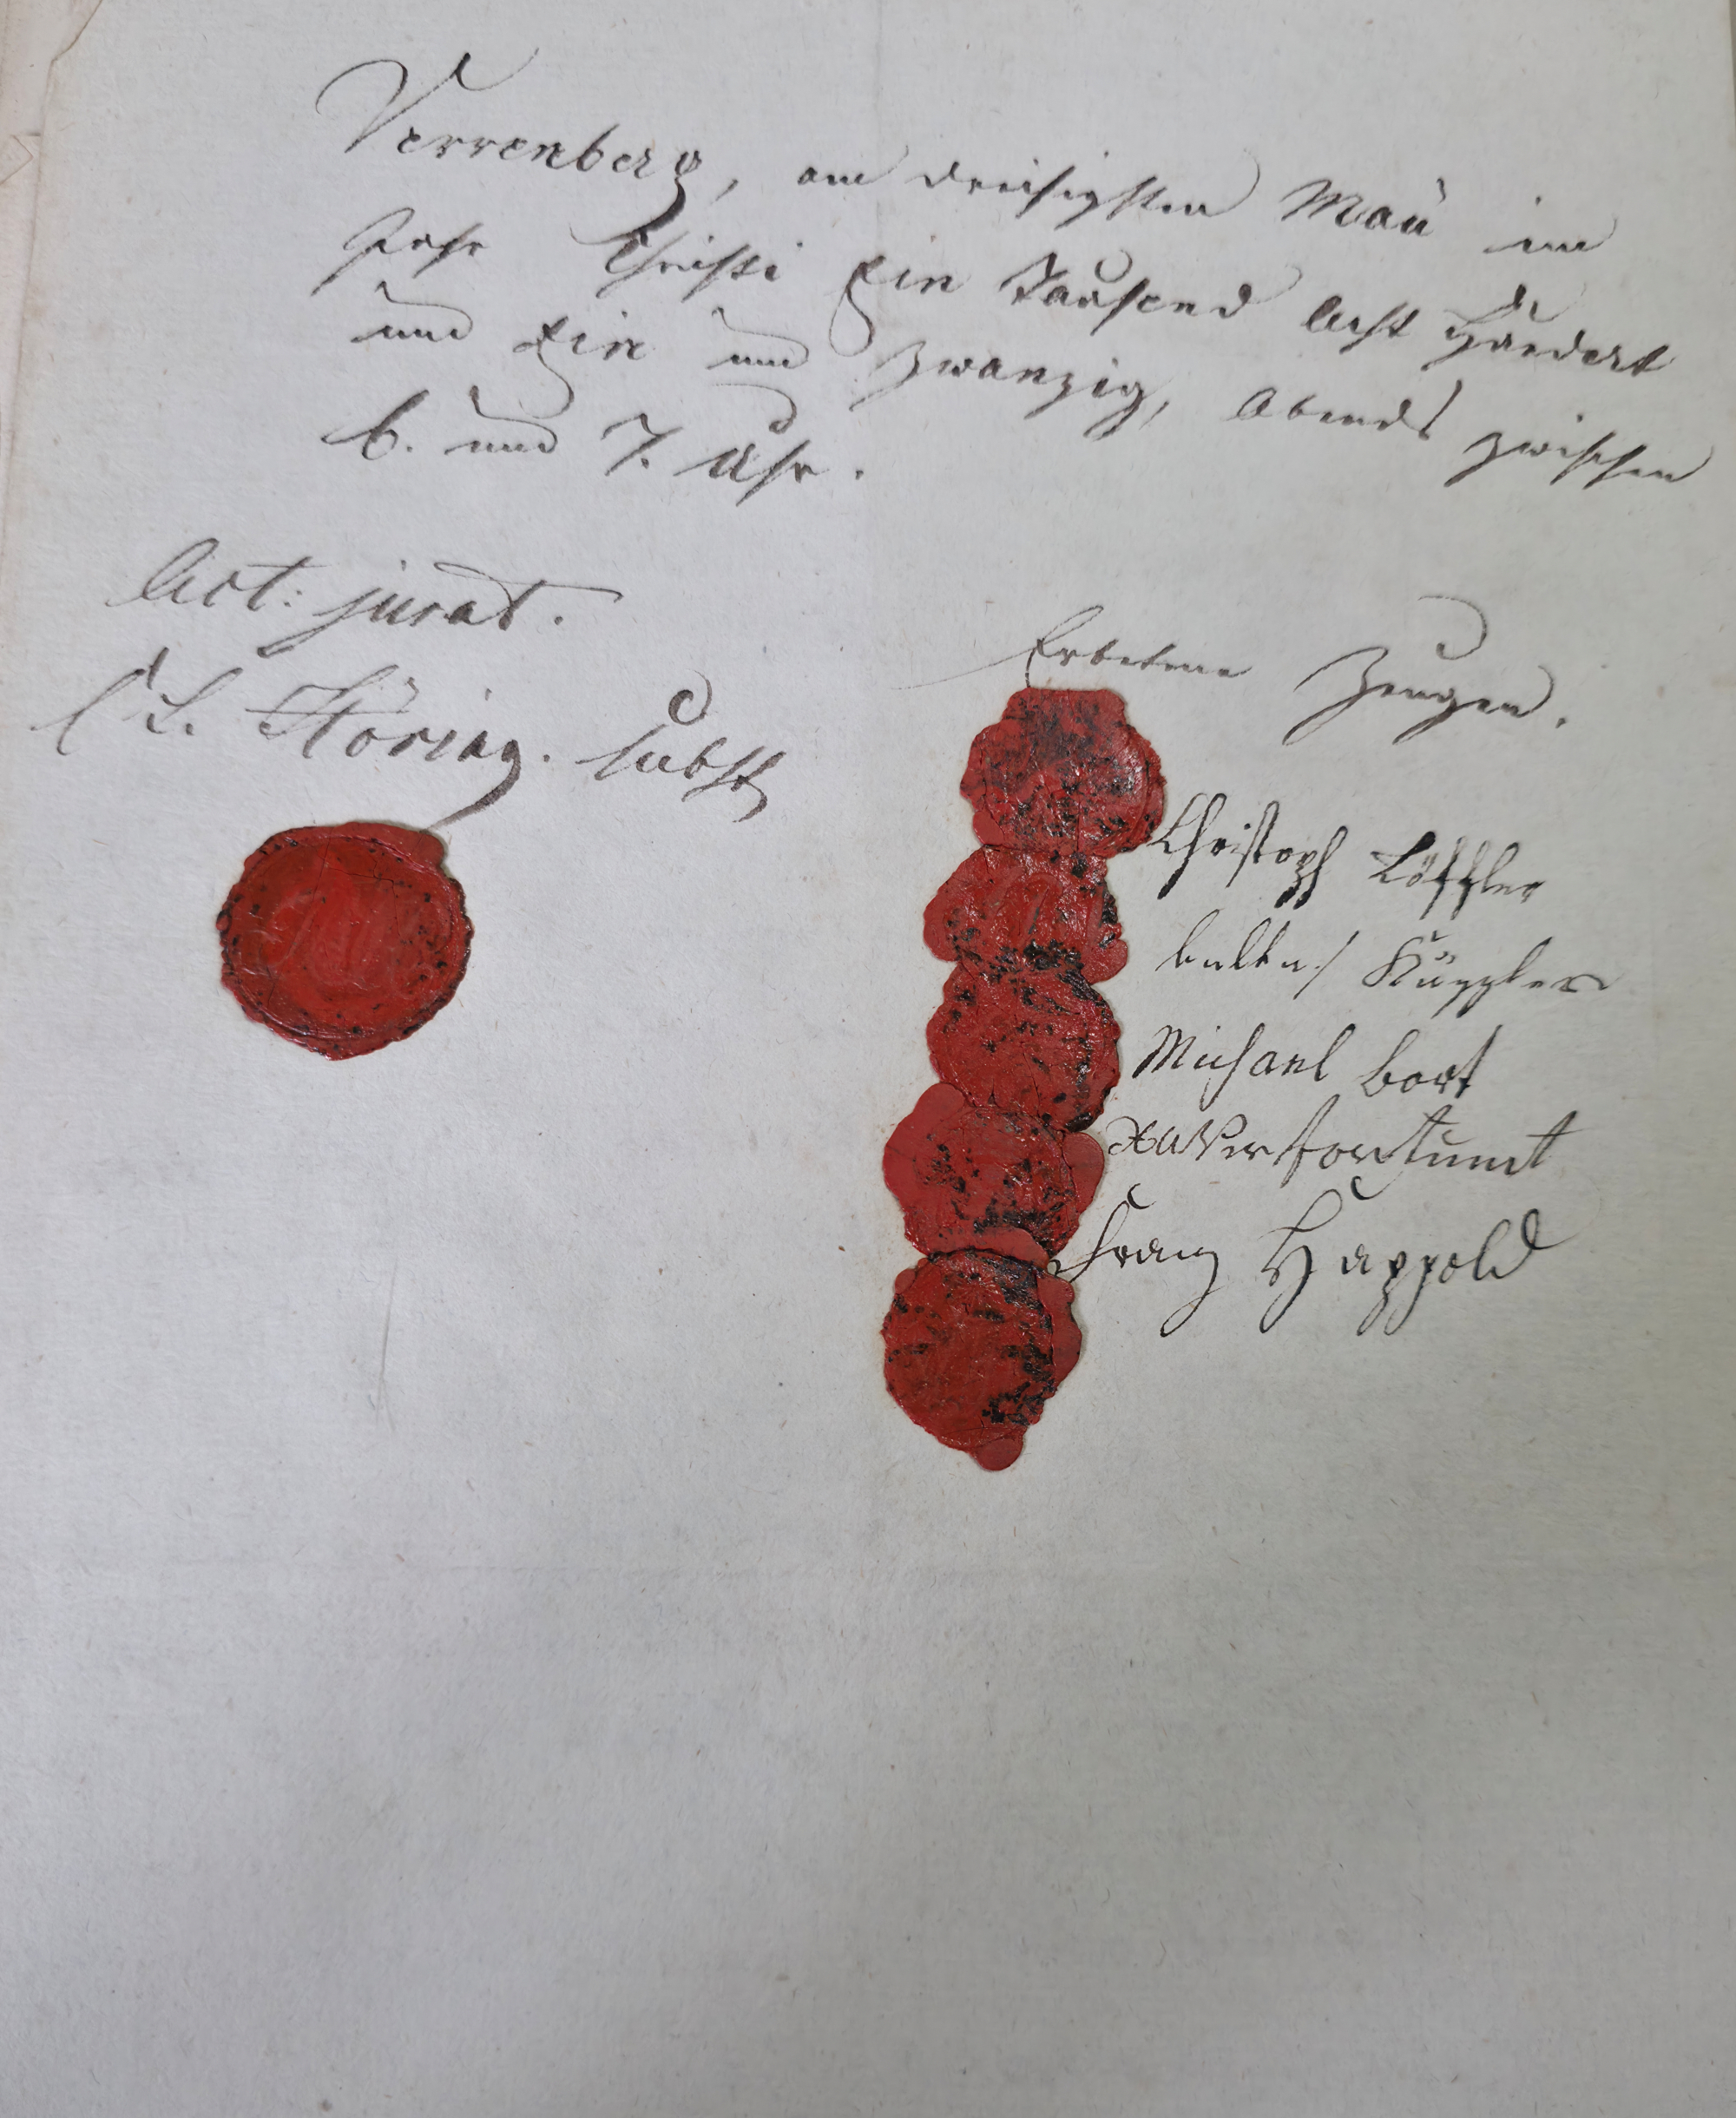 Verrenberg, am dreisigsten Maii im
Jahr Christi Ein Tausend Acht Hundert
und Ein und Zwanzig, Abends zwischen
6. und 7. Uhr.
Act: jurat.
Höring. Subst
Erbetene Zeugen.
Christoph Löffler
Küggler
Michael Bort
Xaver
Franz Happold